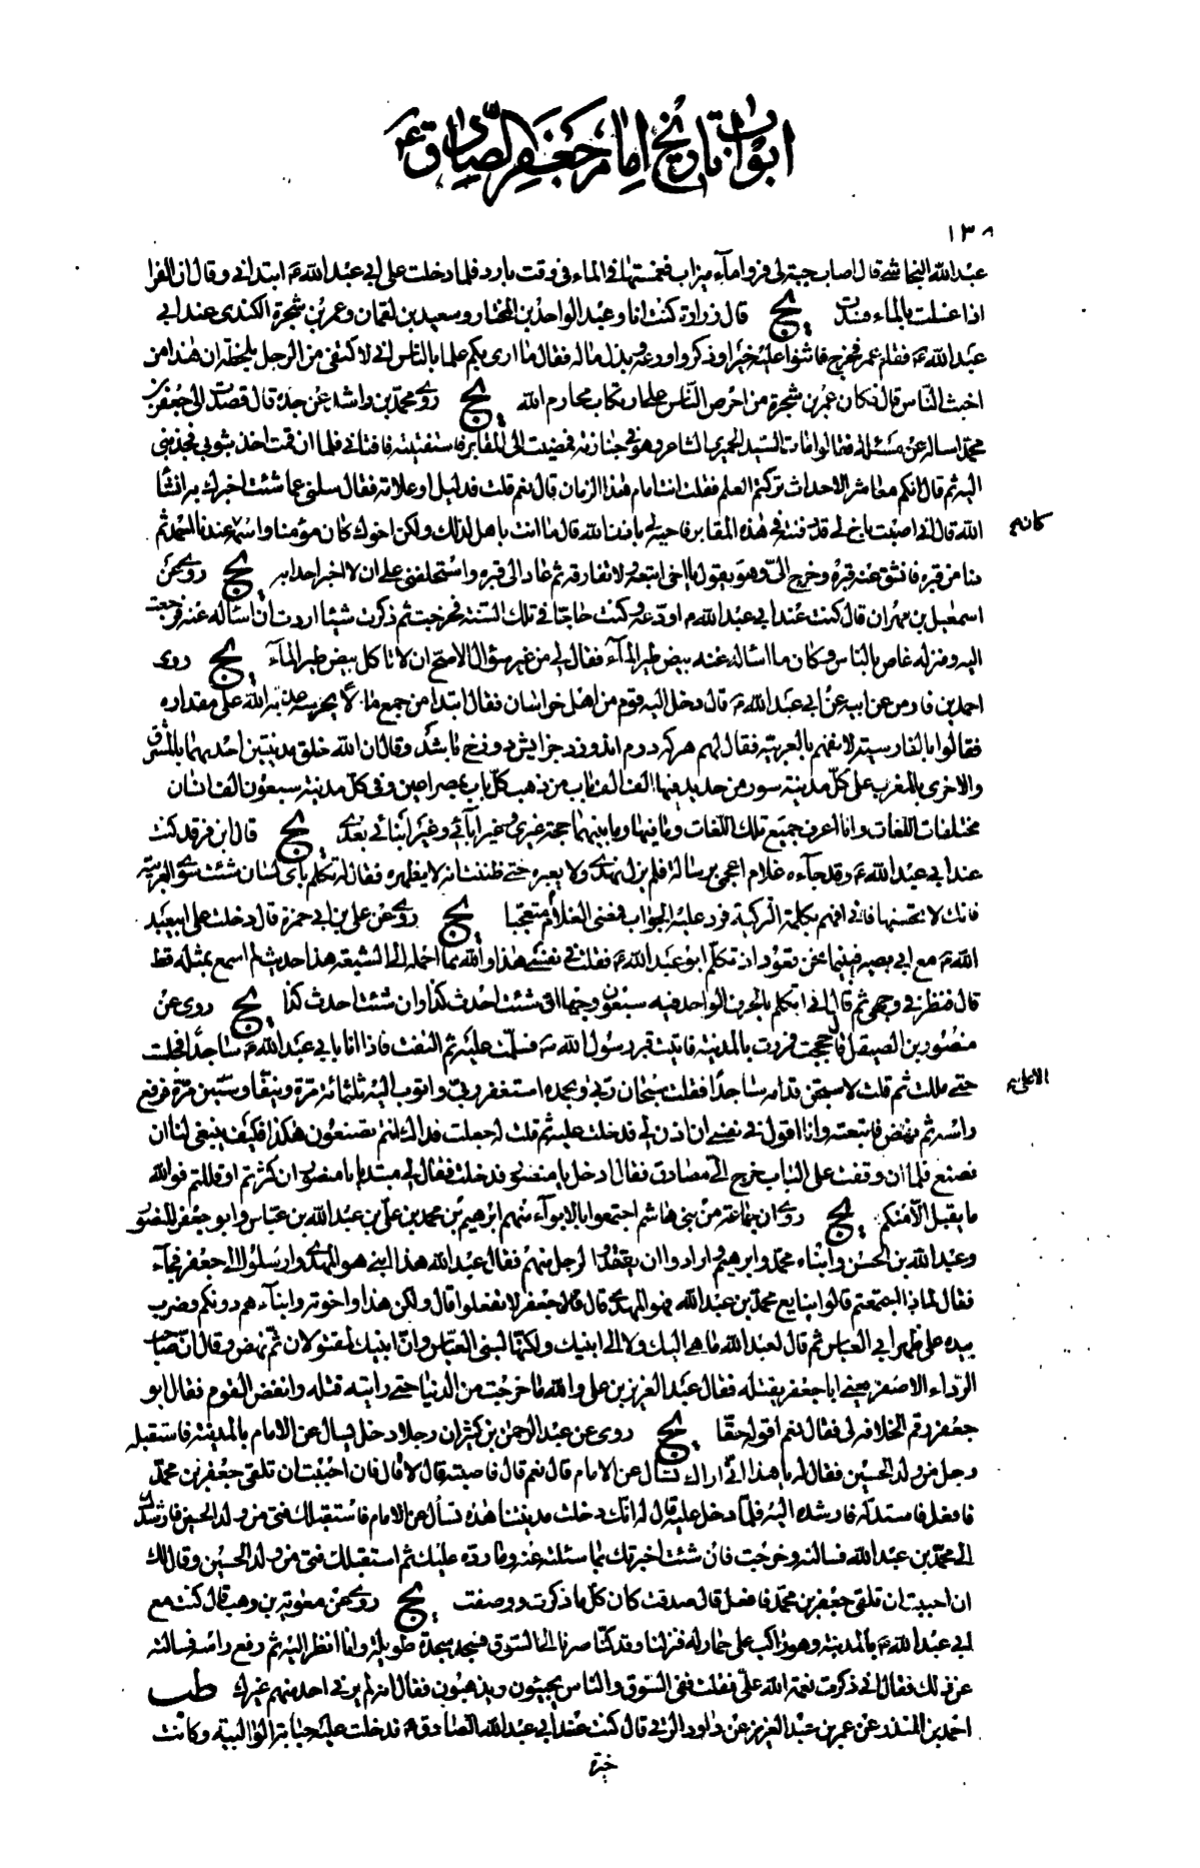 ابواب تاريخ امام جعفر الصادق ع
١٣٨
عبد الله النجاشي قال اصاب جبة لي فروا ماء ميزاب فغمستها في الماء في وقت بارد فلما دخلت على ابي عبد الله ع ابتدأني وقال ان الفرا
اذا غسلت بالماء فسدت يج قال زرارة كنت انا وعبد الواحد بن المختار وسعيد بن لقمان وعمر بن شجرة الكندي عند ابي
عبد الله ع فقام عمر فخرج فاثنوا عليه خيرا وذكروا ورعه وبذل ماله فقال ما ارى بكم علما بالناس اني لاكتفي من الرجل بلحظة ان هذا من
اخبث الناس قال فكان عمر بن شجرة من احرص الناس على ارتكاب محارم الله يج روى محمد بن راشد عن جده قال قصدت الى جعفر بن
محمد اساله عن مسئلة فقالوا مات السيد الحميري الشاعر وهو في جنازته فمضيت الى المقابر فاستفتيته فافتاني فلما ان قمت اخذ بثوبي فجذبني
اليه ثم قال انكم معاشر الاحداث تركتم العلم فقلت انت امام هذا الزمان قال نعم قلت فدليل او علامة فقال سلني عما شئت اخبرك به انشأ
الله قال اني اصبت باخ لي قد دفنته في هذه المقابر فاحيه لي باذن الله قال ما انت باهل لذلك ولكن اخوك كان مؤمنا واسمه عندنا احمد ثم
كانهم
دنا من قبره فانشق عنه قبره وخرج الي وهو يقول يا اخي اتبعه ولا تفارقه ثم عاد الى قبره واستحلفني على ان لا اخبر احدا به يج روي عن
اسمعيل بن مهران قال كنت عند ابي عبد الله ع اودعه وكنت حاجا في تلك السنة فخرجت ثم ذكرت شيئا اردت ان اساله عنه فرجعت
اليه ومنزله غاص بالناس وكان ما اساله عنه بيض طير الماء فقال لي من غير سؤال الاصح ان لا تاكل بيض طير الماء يج روى
احمد بن فارس عن ابيه عن ابي عبد الله ع قال دخل اليه قوم من اهل خراسان فقال ابتدا من جمع مالا يحرسه عذبه الله على مقداره
فقالوا بالفارسية لا نفهم بالعربية فقال لهم هر كه درم اندوزد جزايش دوزخ باشد وقال ان الله خلق مدينتين احديهما بالمشرق
والاخرى بالمغرب على كل مدينة سور من حديد فيها الف الف باب من ذهب كل باب بمصراعين وفي كل مدينة سبعون الف انسان
مختلفات اللغات وانا اعرف جميع تلك اللغات وما فيها وما بينهما حجة غيري وغير ابائي وغير ابنائي بعدي يج قال ابن فرقد كنت
عند ابي عبد الله ع وقد جاءه غلام اعجمي برسالة فلم يزل يهذي ولا يعبر حتى ظننت انه لا يظهره فقال له تكلم باي لسان شئت سوى العربية
فانك لا تحسنها فاني افهم بكلمه التركية فرد عليه الجواب فمضى الغلام متعجبا يج روي عن علي بن ابي حمزة قال دخلت على ابيعبد
الله ع مع ابي بصير فبينما نحن قعود اذ تكلم ابو عبد الله ع فقلت في نفسي هذا والله مما احمله الى الشيعة هذا حديث لم اسمع بمثله قط
قال فنظر في وجهي ثم قال اني اتكلم بالحرف الواحد فيه سبعون وجها ان شئت احدث كذا وان شئت احدث كذا يج روى عن
منصور بن الصيقل قال حججت فمررت بالمدينة فاتيت قبر رسول الله ص فسلمت عليه ثم التفت فاذا انا بابي عبد الله ع ساجدا فجلست
حتى مللت ثم قلت لاسبحن قدامه ساجدا فقلت سبحان ربي وبحمده استغفر ربي واتوب اليه ثلثمائة مرة ونيفا وستين مرة فرفع
الاعلى
راسه ثم نهض فاتبعته وانا اقول في نفسي ان اذن لي قد دخلت عليه ثم قلت له جعلت فداك انتم تصنعون هكذا فكيف ينبغي لنا ان
نصنع فلما ان وقفت على الباب خرج الي مصادف فقال ادخل يا منصور فدخلت فقال لي مبتدئا يا منصور ان كثرتم او قللتم فوالله
ما يقبل الا منكم يج روي ان جماعة من بني هاشم اجتمعوا بالابواء منهم ابرهيم بن محمد بن علي بن عبد الله بن عباس وابو جعفر المنصور
وعبد الله بن الحسن وابناه محمد وابرهيم وارادوا ان يعقدوا لرجل منهم فقال عبد الله هذا ابني هو المهدي وارسلوا الى جعفر فجاء
فقال لماذا اجتمعتم قالوا نبايع محمد بن عبد الله فهو المهدي قال جعفر لا تفعلوا قال ولكن هذا واخوته وابناءهم دونكم وضرب
بيده على ظهر ابي العباس ثم قال لعبد الله ما هي اليك ولا الى ابنيك ولكنها لبني العباس وان ابنيك لمقتولان ثم نهض وقال ان صاحب
الرداء الاصفر يعني ابا جعفر يقتله فقال عبد العزيز بن علي والله ما خرجت من الدنيا حتى رايته قتله وانفض القوم فقال ابو
جعفر وتم الخلافة لي فقال نعم اقوله حقا يج روى عن عبد الرحمن بن كثير ان رجلا دخل يسال عن الامام بالمدينة فاستقبله
رجل من ولد الحسين فقال له يا هذا اني اراك تسال عن الامام قال نعم قال فاصبته قال لا قال فان احببت ان تلقى جعفر بن محمد
فافعل فاستدله فارشده اليه فلما دخل عليه قال له انك دخلت مدينتنا هذه تسأل عن الامام فاستقبلك فتى من ولد الحسين فارشدك
الى محمد بن عبد الله فسالته وخرجت فان شئت اخبرتك بما سئلته عنه وما رده عليك ثم استقبلك فتى من ولد الحسين وقال لك
ان احببت ان تلقى جعفر بن محمد فافعل قال صدقت كان كل ما ذكرت ووصفت يج روي عن معوية بن وهب قال كنت مع
ابي عبد الله ع بالمدينة وهو راكب على حمار له فنزلنا وقد كنا صرنا الى السوق فسجد سجدة طويلة وانا انظر اليه ثم رفع راسه فسالته
عن ذلك فقال اني ذكرت نعمة الله علي فقلت ففي السوق والناس يجيئون ويذهبون فقال انه لم يرني احد منهم غيرك طب
احمد بن المنذر عن عمر بن عبد العزيز عن داود الرقي قال كنت عند ابي عبد الله الصادق ع فدخلت عليه حبابة الوالبية وكانت
خيرة